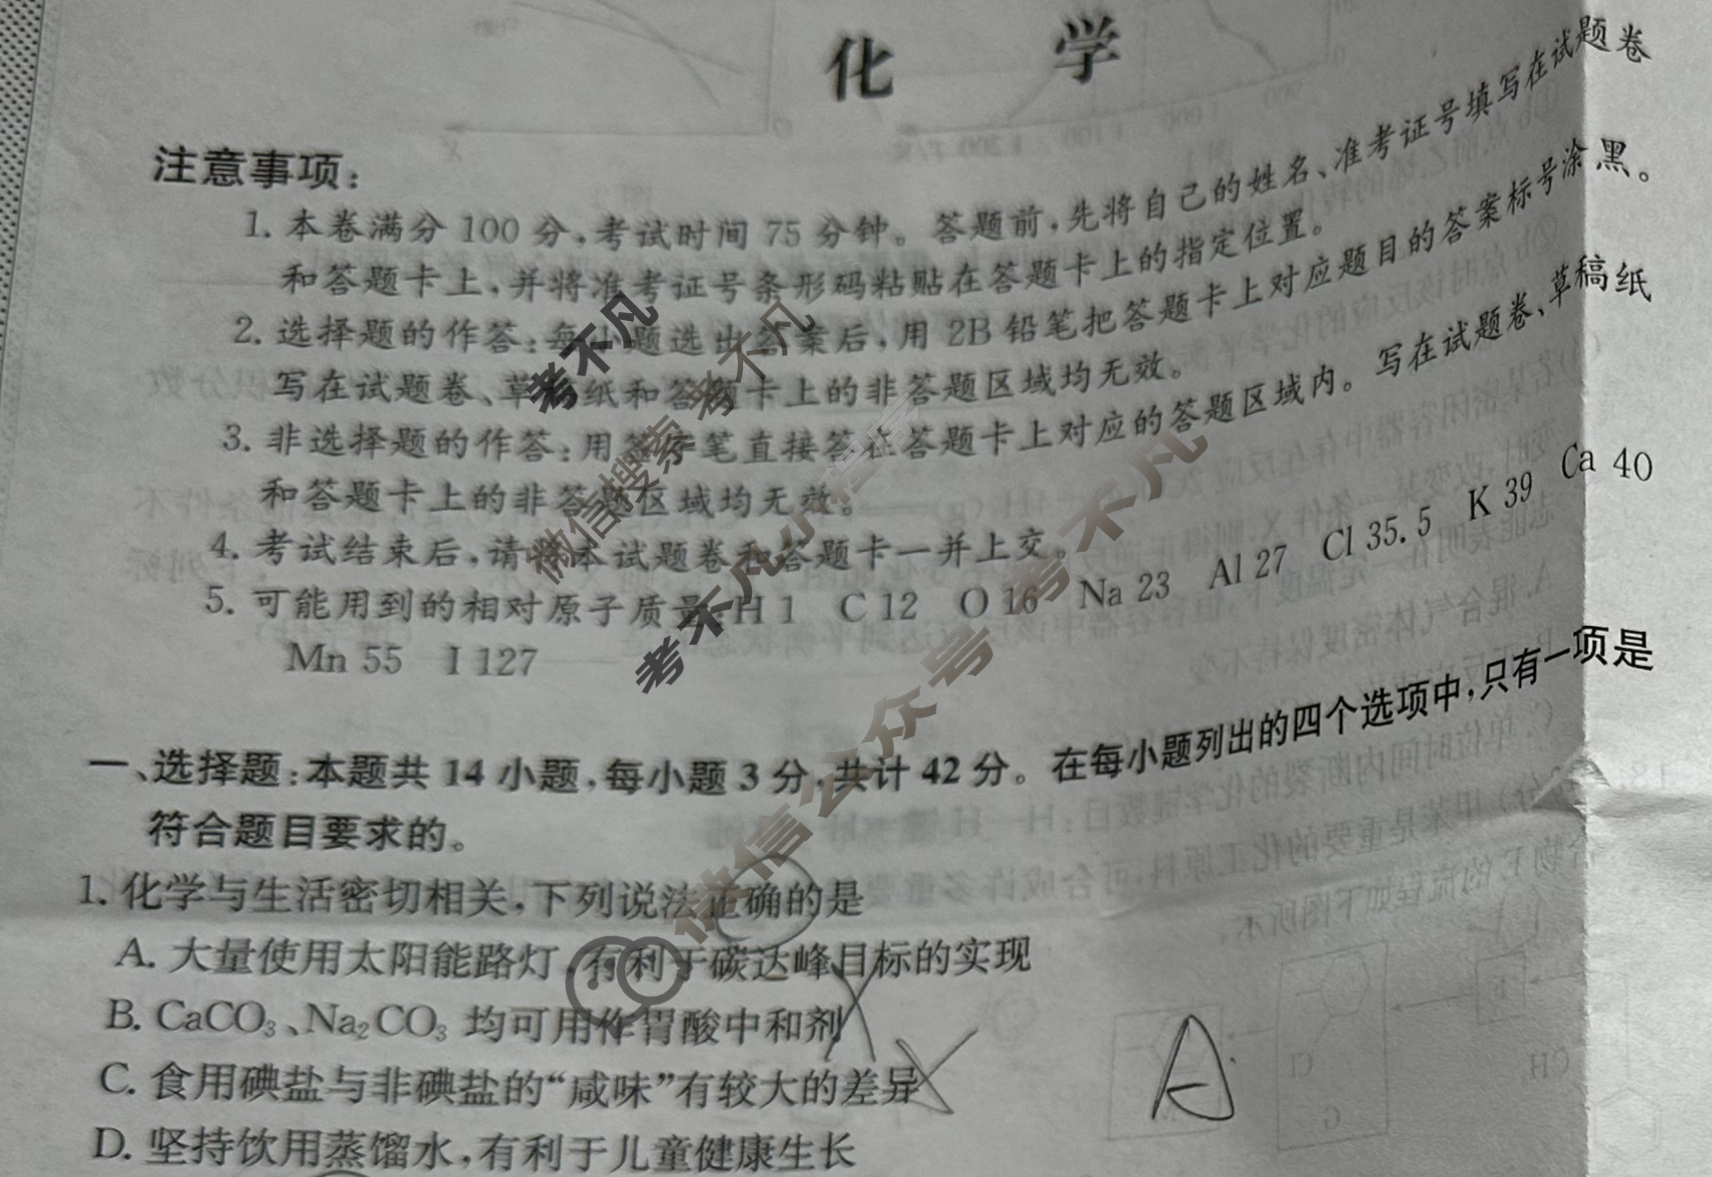 化 学
注意事项：
1. 本卷满分 100 分，考试时间 75 分钟。答题前，先将自己的姓名、准考证号填写在试题卷
和答题卡上，并将准考证号条形码粘贴在答题卡上的指定位置。
2. 选择题的作答：每小题选出答案后，用 2B 铅笔把答题卡上对应题目的答案标号涂黑。
写在试题卷、草稿纸和答题卡上的非答题区域均无效。
3. 非选择题的作答：用签字笔直接答在答题卡上对应的答题区域内。写在试题卷、草稿纸
和答题卡上的非答题区域均无效。
4. 考试结束后，请将本试题卷和答题卡一并上交。
5. 可能用到的相对原子质量：H 1 C 12 O 16 Na 23 Al 27 Cl 35.5 K 39 Ca 40
Mn 55 I 127
一、选择题：本题共 14 小题，每小题 3 分，共计 42 分。在每小题列出的四个选项中，只有一项是
符合题目要求的。
1. 化学与生活密切相关，下列说法正确的是
A. 大量使用太阳能路灯，有利于碳达峰目标的实现
B. CaCO₃、Na₂CO₃ 均可用作胃酸中和剂
C. 食用碘盐与非碘盐的“咸味”有较大的差异
D. 坚持饮用蒸馏水，有利于儿童健康生长
A
考不凡
微信搜索 考不凡
考不凡小程序
微信公众号 考不凡